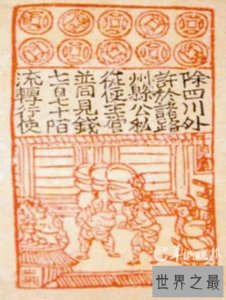 除四川外
許於諸路
州縣公私
從便主管
並同見錢
七百七十陌
流轉行使
世界之最